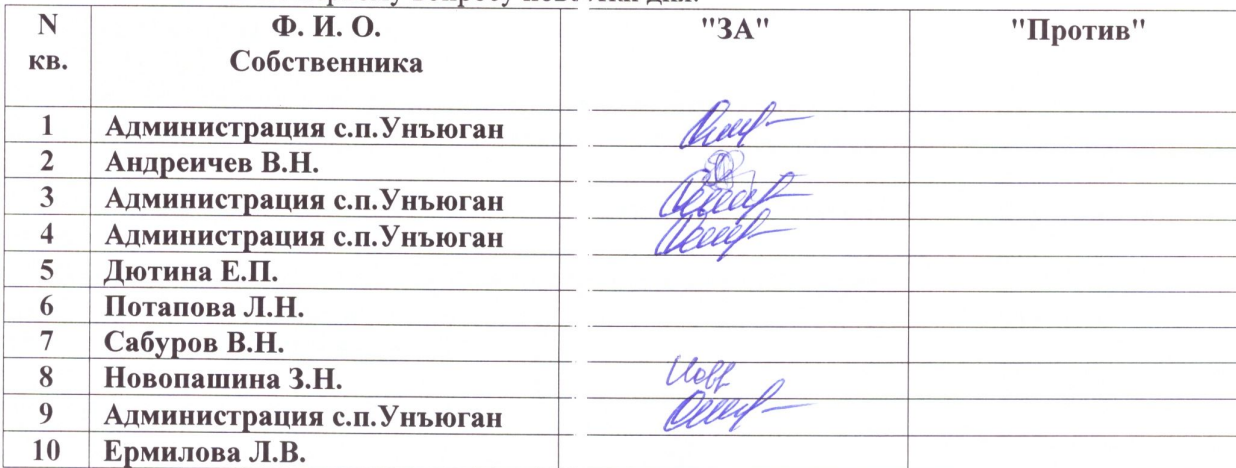 N Ф. И. О. "ЗА" "Против"
кв. Собственника
1 Администрация с.п.Унъюган
2 Андреичев В.Н.
3 Администрация с.п.Унъюган
4 Администрация с.п.Унъюган
5 Дютина Е.П.
6 Потапова Л.Н.
7 Сабуров В.Н.
8 Новопашина З.Н.
9 Администрация с.п.Унъюган
10 Ермилова Л.В.